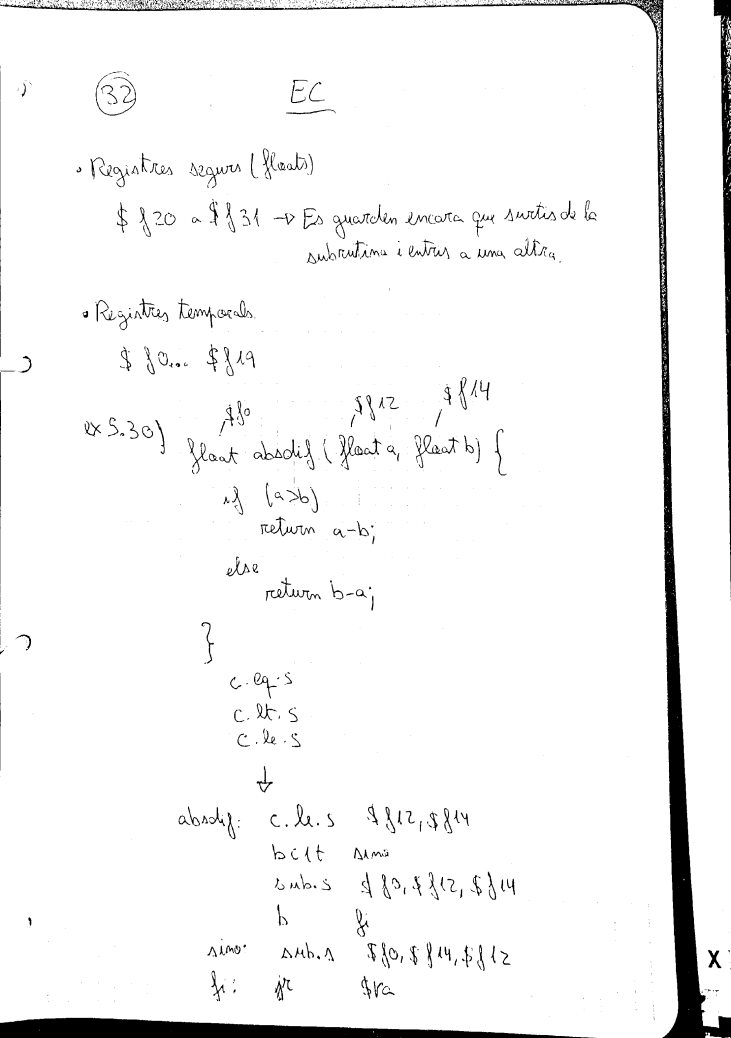 32 EC
• Registres segurs (floats)
$f20 a $f31 → Es guarden encara que surtis de la
subrutina i entris a una altra.
• Registres temporals.
$f0... $f19
$f0 $f12 $f14
ex 5.30) float absdif (float a, float b) {
if (a>b)
return a-b;
else
return b-a;
}
c.eq.s
c.lt.s
c.le.s
↓
absdif: c.le.s $f12, $f14
bc1t sino
sub.s $f0, $f12, $f14
b fi
sino: sub.s $f0, $f14, $f12
fi: jr $ra
X